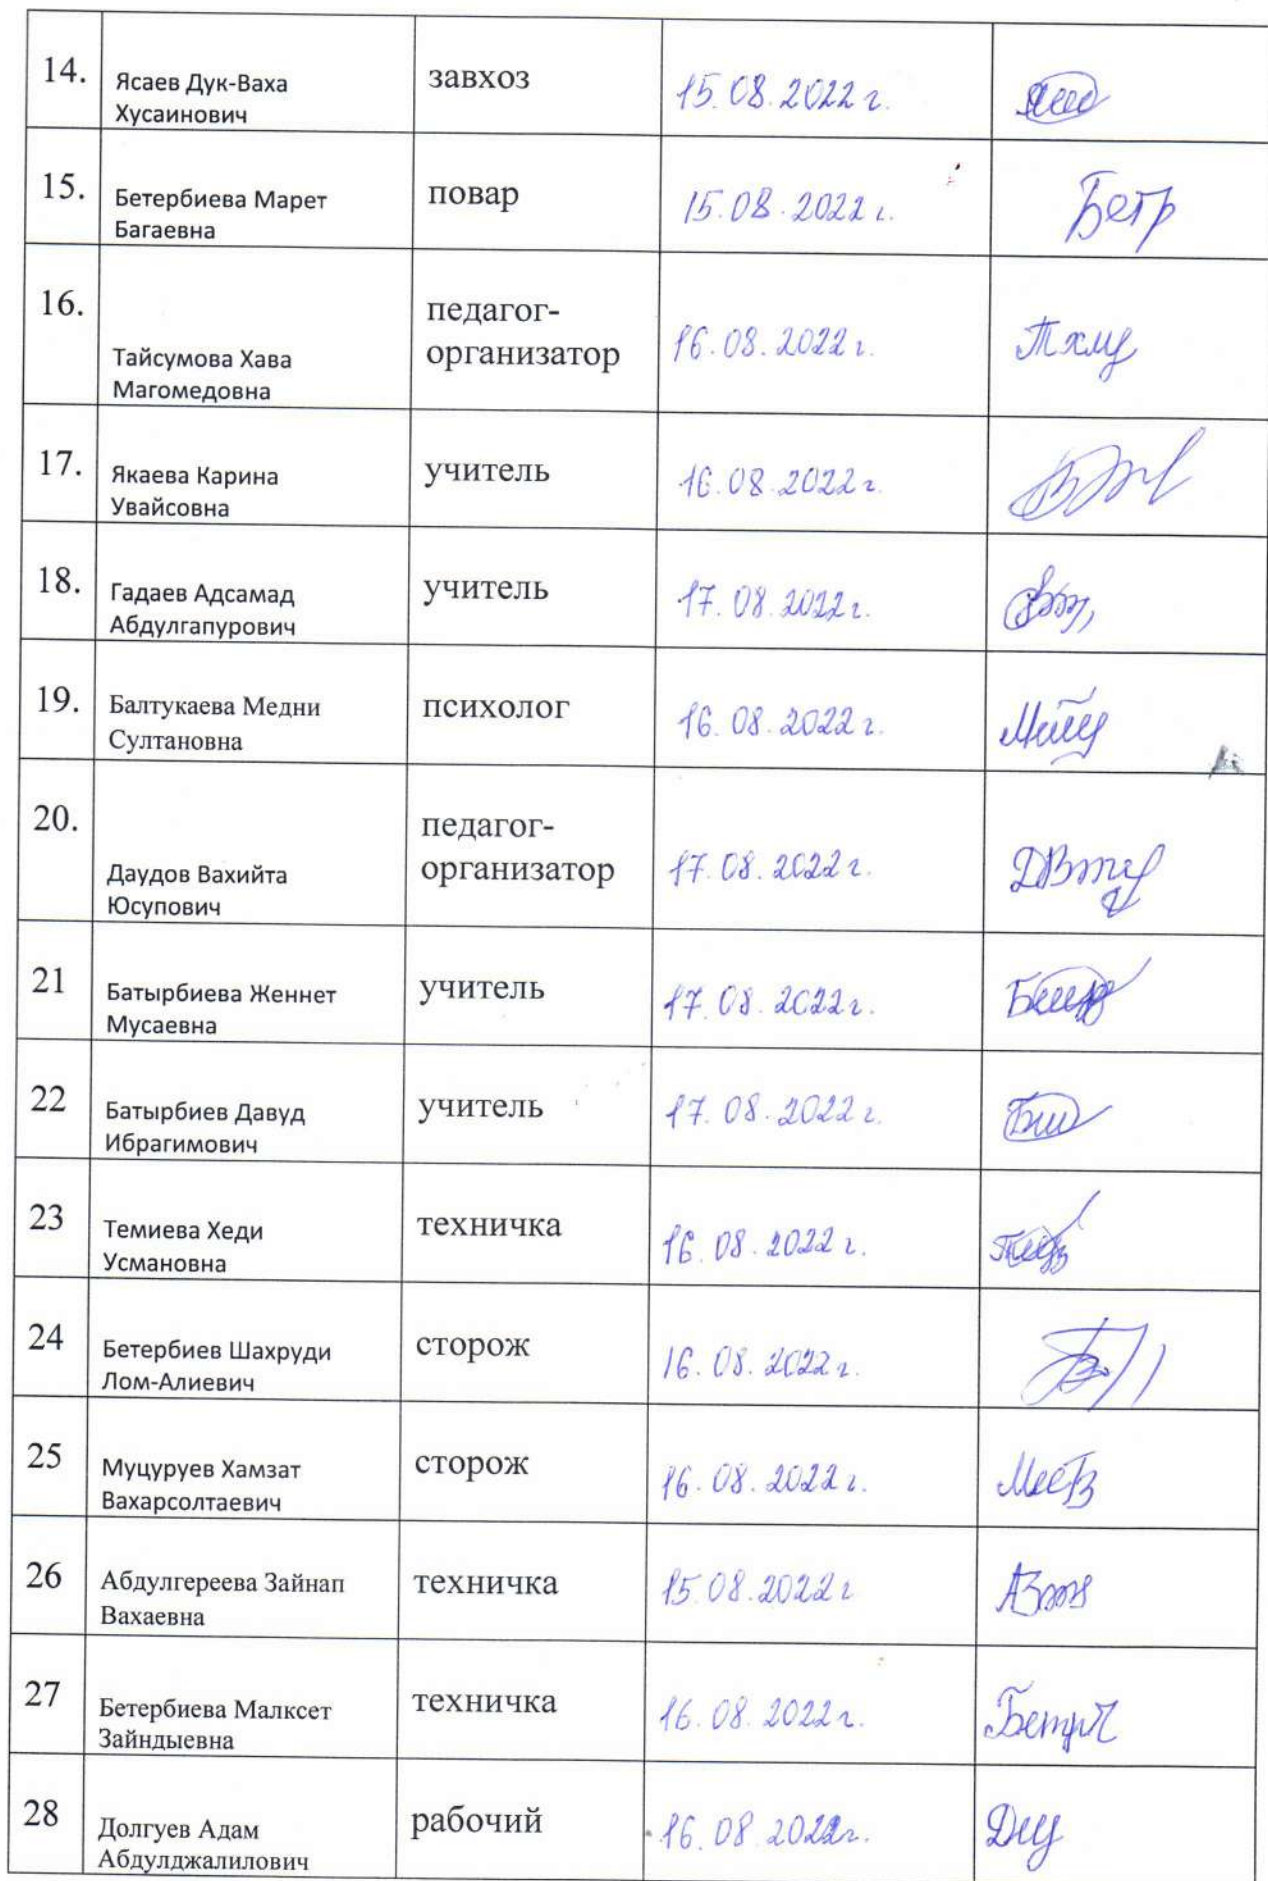 14.
Ясаев Дук-Ваха
Хусаинович
завхоз
15.08.2022 г.
15.
Бетербиева Марет
Багаевна
повар
15.08.2022 г.
Бетр
16.
Тайсумова Хава
Магомедовна
педагог-
организатор
16.08.2022 г.
17.
Якаева Карина
Увайсовна
учитель
16.08.2022 г.
18.
Гадаев Адсамад
Абдулгапурович
учитель
17.08.2022 г.
19.
Балтукаева Медни
Султановна
психолог
16.08.2022 г.
20.
Даудов Вахийта
Юсупович
педагог-
организатор
17.08.2022 г.
21
Батырбиева Женнет
Мусаевна
учитель
17.08.2022 г.
22
Батырбиев Давуд
Ибрагимович
учитель
17.08.2022 г.
23
Темиева Хеди
Усмановна
техничка
16.08.2022 г.
24
Бетербиев Шахруди
Лом-Алиевич
сторож
16.08.2022 г.
25
Муцуруев Хамзат
Вахарсолтаевич
сторож
16.08.2022 г.
26
Абдулгереева Зайнап
Вахаевна
техничка
15.08.2022 г
27
Бетербиева Малксет
Зайндыевна
техничка
16.08.2022 г.
28
Долгуев Адам
Абдулджалилович
рабочий
16.08.2022 г.